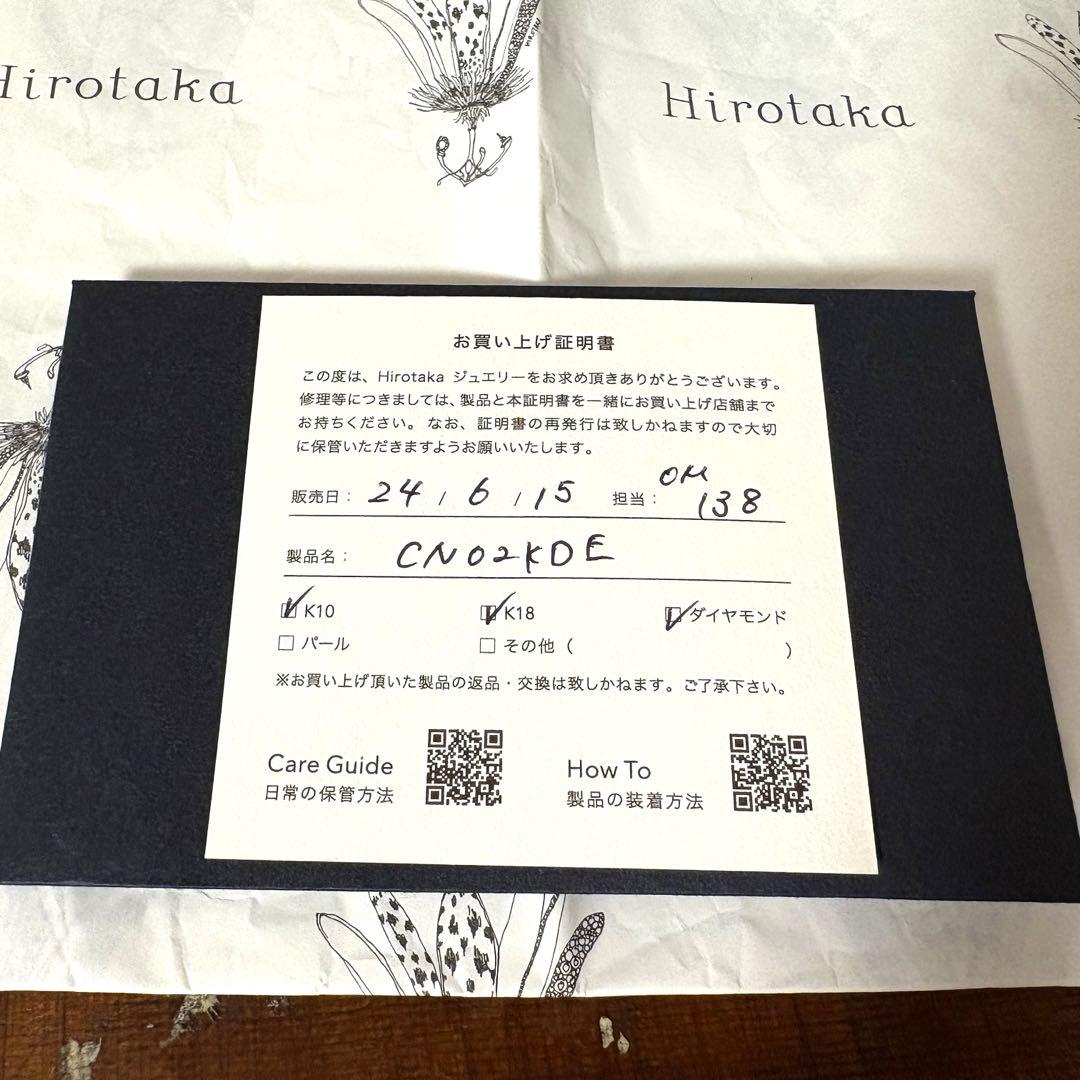 Hirotaka
Hirotaka
お買い上げ証明書
この度は、Hirotaka ジュエリーをお求め頂きありがとうございます。
修理等につきましては、製品と本証明書を一緒にお買い上げ店舗まで
お持ちください。なお、証明書の再発行は致しかねますので大切
に保管いただきますようお願いいたします。
販売日: 24 / 6 / 15 担当: OM 138
製品名: CN02KDE
K10 K18 ダイヤモンド
パール その他 ( )
※お買い上げ頂いた製品の返品・交換は致しかねます。ご了承下さい。
Care Guide
日常の保管方法
How To
製品の装着方法